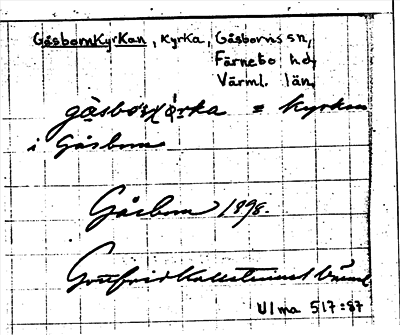 GåsbornKyrKan, Kyrka, Gåsborns sn,
Färnebo hd,
Värml. län
gåsborʃörka = Kyrkan
i Gåsborn
Gåsborn 1898.
Gottfrid Kallstenius
Ulma 517:87